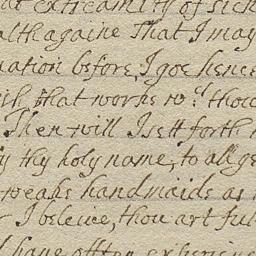 extreamity of sick
alth againe That I may
uation before, I goe hence
that works wch thou
Then will I sett forth
by thy holy name, to all ge
weake handmaide as
I beleive, thou art full
have often experienc